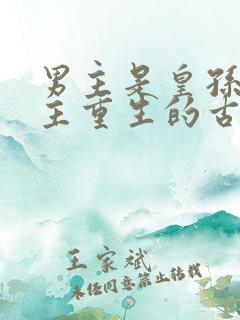 男主是皇孙
主重生的古
王家斌
未经同意禁止转载